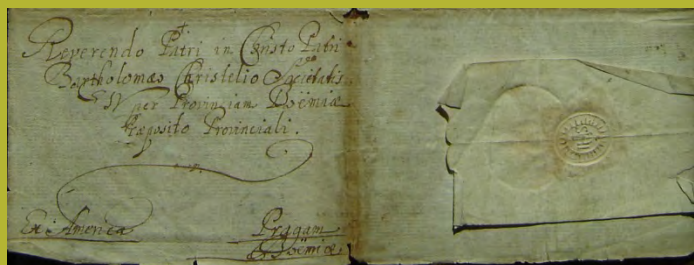 Reverendo Patri in Christo Patri
Bartholomæo Christelio Societatis
per Provinciam Boëmiæ
Præposito Provinciali.
Ex America
Pragam
Boëmiæ.